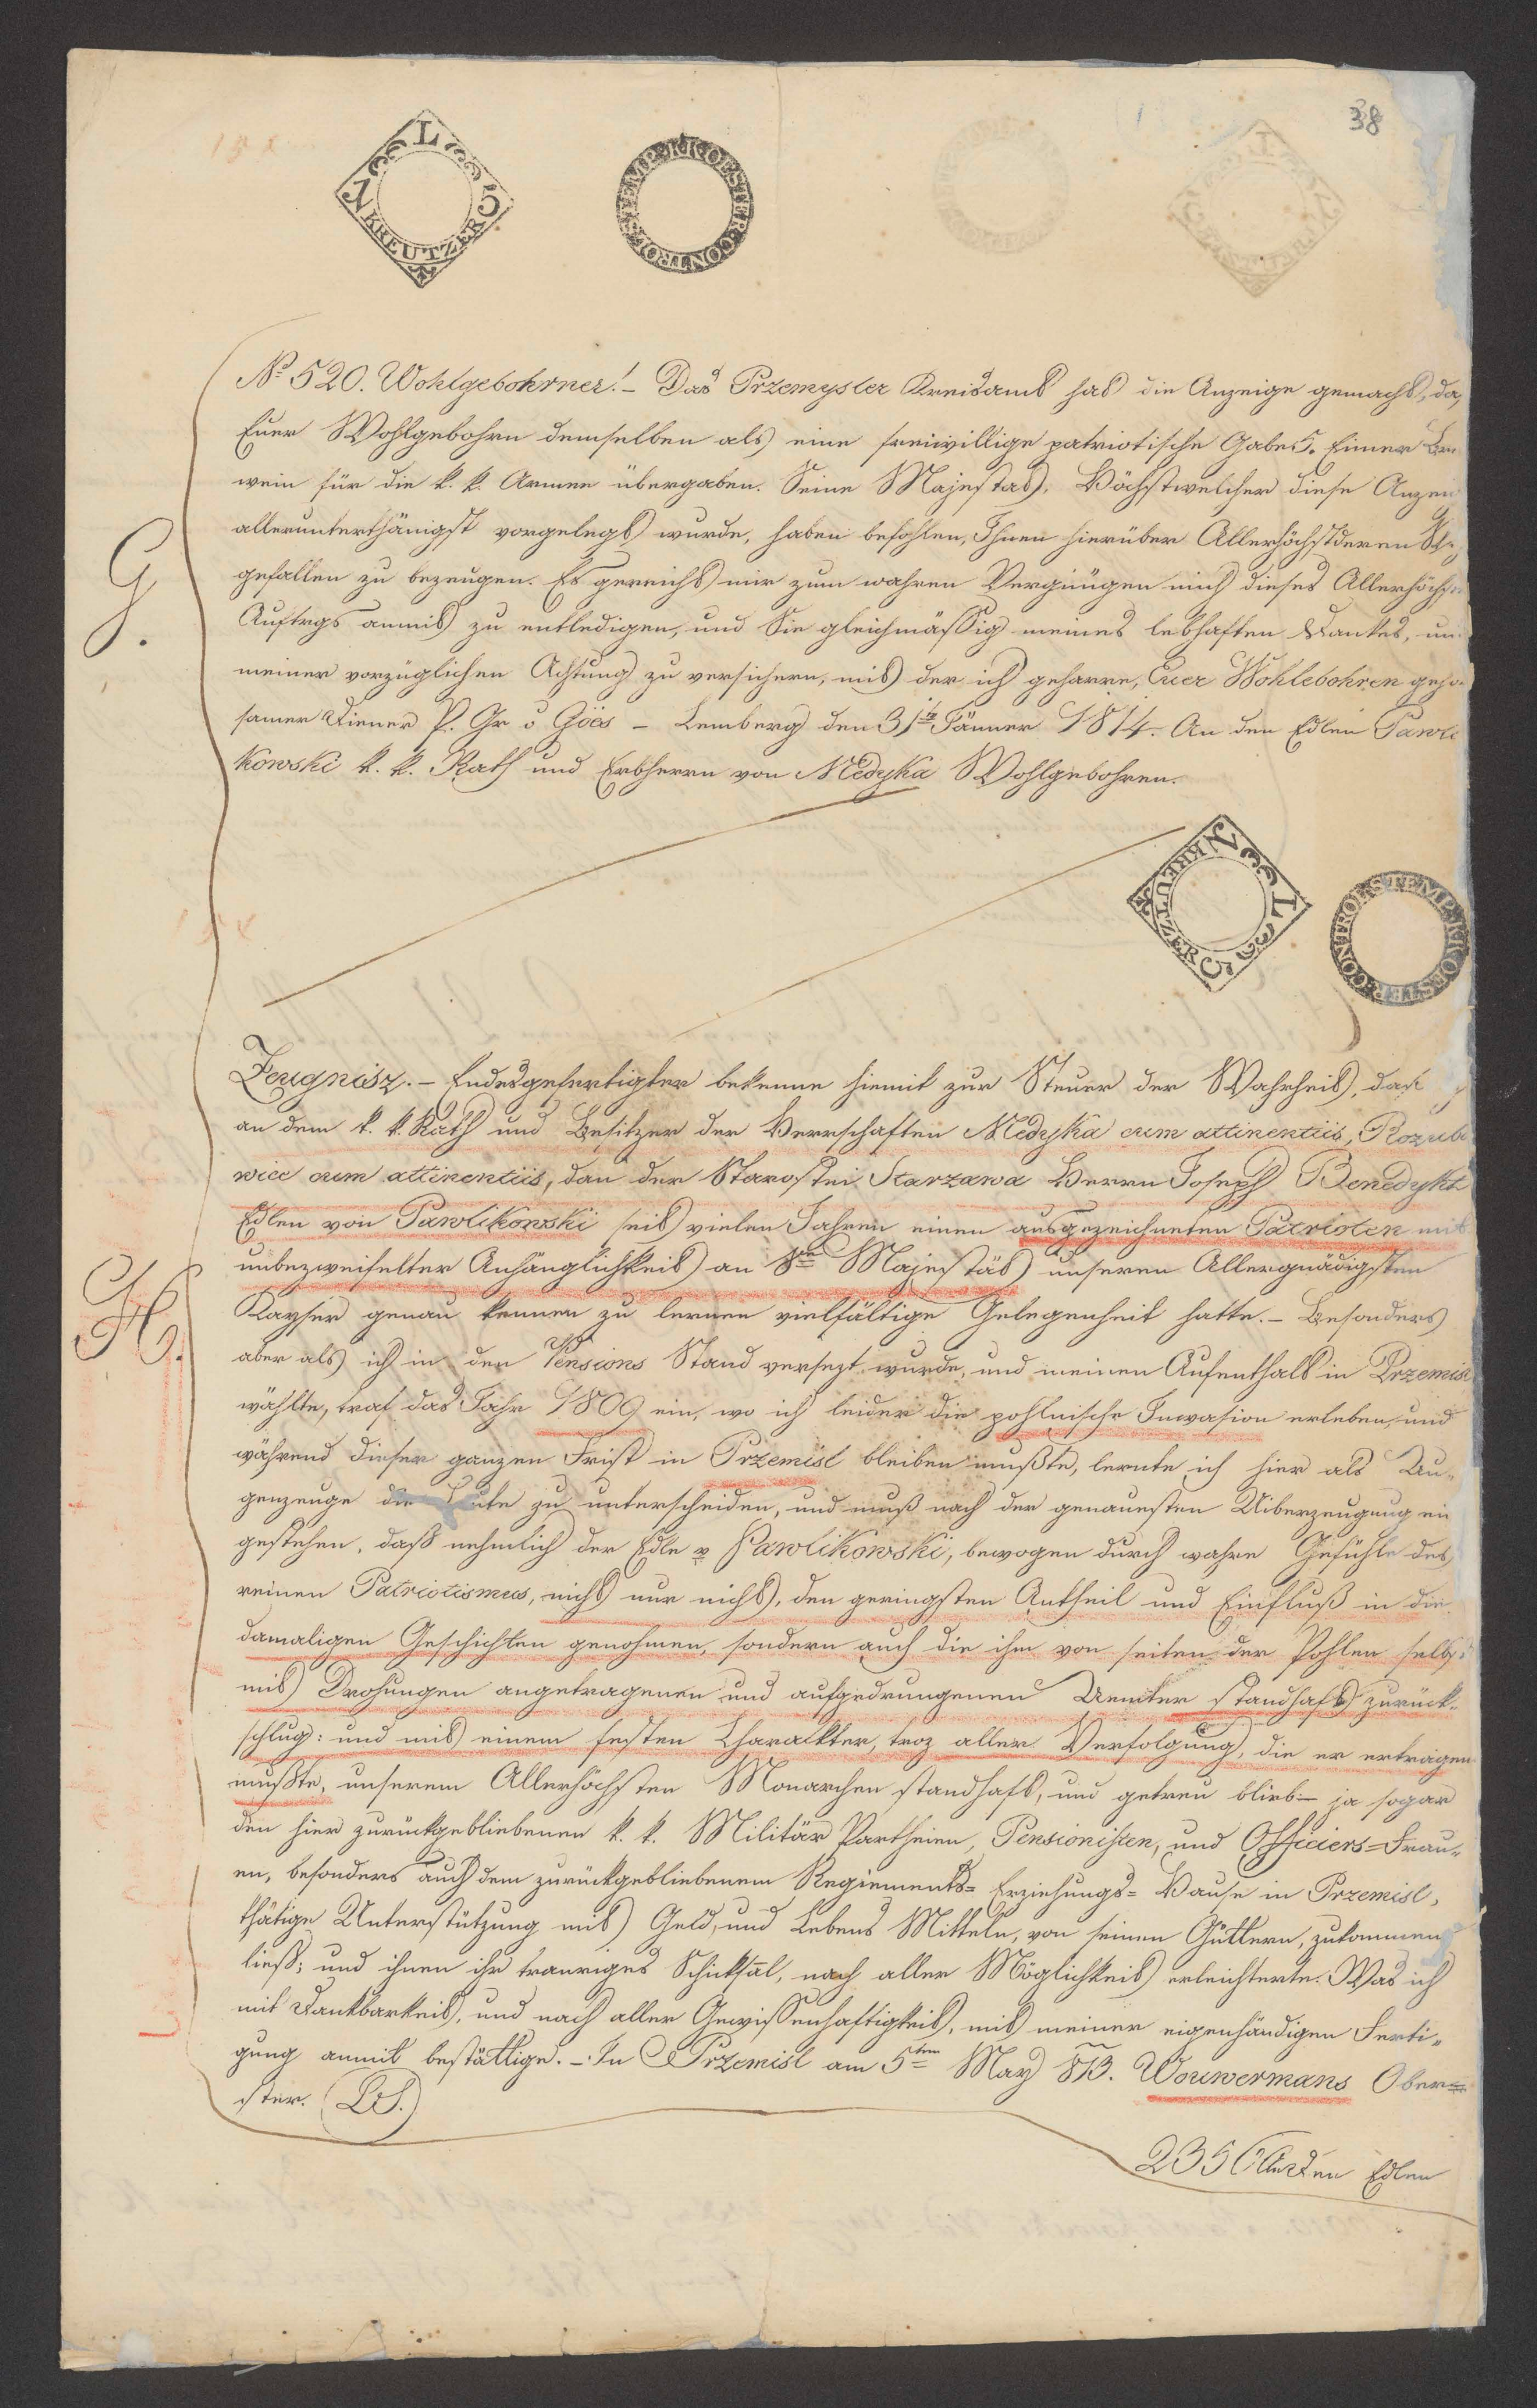 38
L
15 KREUTZER
STEMP. KK OESTER. CONTROL
G.
№ 520. Wohlgebohrner! – Das Przemysler Kreisamt hat die Anzeige gemacht, da
Euer Wohlgebohrn demselben als eine freiwillige patriotische Gabe 5. Eimer
wein für die k. k. Armee übergaben. Seine Majestät, Höchstwelcher diese Anzei
allerunterthänigst vorgelegt wurde, haben befohlen, Ihnen hierüber Allerhöchstderen
gefallen zu bezeugen. Es gereicht mir zum wahren Vergnügen mich dieses Allerhöchsten
Auftrgs anmit zu entledigen, und Sie gleichmässig meines lebhaften Dankes, un
meiner vorzüglichen Achtung zu versichern, mit der ich geharre, Euer Wohlebohren geho
samer Diener P. Gr v Göes – Lemberg den 31te Jänner 1814. An den Edlen Pawli
kowski k. k. Rath und Erbherrn von Medyka Wohlgebohren.
L
15 KREUTZER
STEMP. KK OESTER. CONTROL
H.
Zeugnisz. – Endesgefertigter bekenne hiemit zur Steuer der Wahrheit, daß
an dem k. k. Rath und Besitzer der Herrschaften Medyka cum attinentiis, Rozubo
wice cum attinentiis, dan der Starostei Starzawa Herrn Joseph Benedykt
Edlen von Pawlikowski seit vielen Jahren einen ausgezeichneten Patrioten mit
unbezweifelter Anhänglichkeit an Se Majestät unseren Allergnädigsten
Kayser genau kennen zu lernen vielfältige Gelegenheit hatte. – Besonders
aber als ich in den Pensions Stand versezt wurde, und meinen Aufenthalt in Przemisl
wählte, traf das Jahr 1809 ein, wo ich leider die pohlnische Invasion erleben, und
während dieser ganzen Frist in Przemisl bleiben mußte, lernte ich hier als Au-
genzeuge die Leute zu unterscheiden, und muß nach der genauesten Uiberzeugung ein
gestehen, daß nehmlich der Edle v Pawlikowski, bewogen durch wahre Gefühle des
reinen Patriotismus, nicht nur nicht, den geringsten Antheil und Einfluß in die
damaligen Geschichten genohmen, sondern auch die ihm von seiten der Pohlen selbst
mit Drohungen angetragenen und aufgedrungenen Aemter standhaft zurück-
schlug: und mit einem festen Charackter, troz aller Verfolgung, die er ertragen
mußte, unserem Allerhöchsten Monarchen standhaft, und getreu blieb – ja sogar
den hier zurückgebliebenen k. k. Militär Partheien, Pensionisten, und Officiers-Frau-
en, besonders auch dem zurückgebliebenem Regiements- Erziehungs- Hause in Przemisl,
thätige Unterstützung mit Geld, und Lebens Mitteln, von seinen Güttern, zukommen
ließ; und ihnen ihr trauriges Schicksal, nach aller Möglichkeit erleichterte. Was ich
mit Dankbarkeit, und nach aller Gewissenhaftigkeit, mit meiner eigenhändigen Ferti-
gung anmit bestättige. – In Przemisl am 5ten May 813. Wouwermans Ober-
ster. (LS.)
An den Edlen